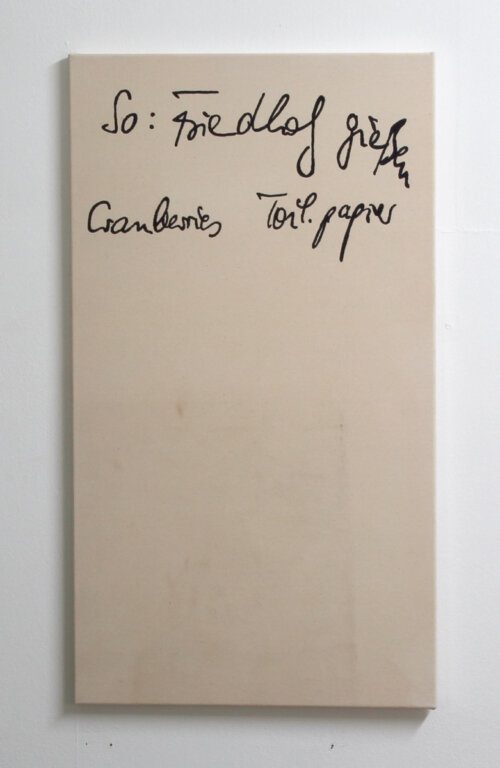 So: Friedhof gießen
Cranberries Toil. papier